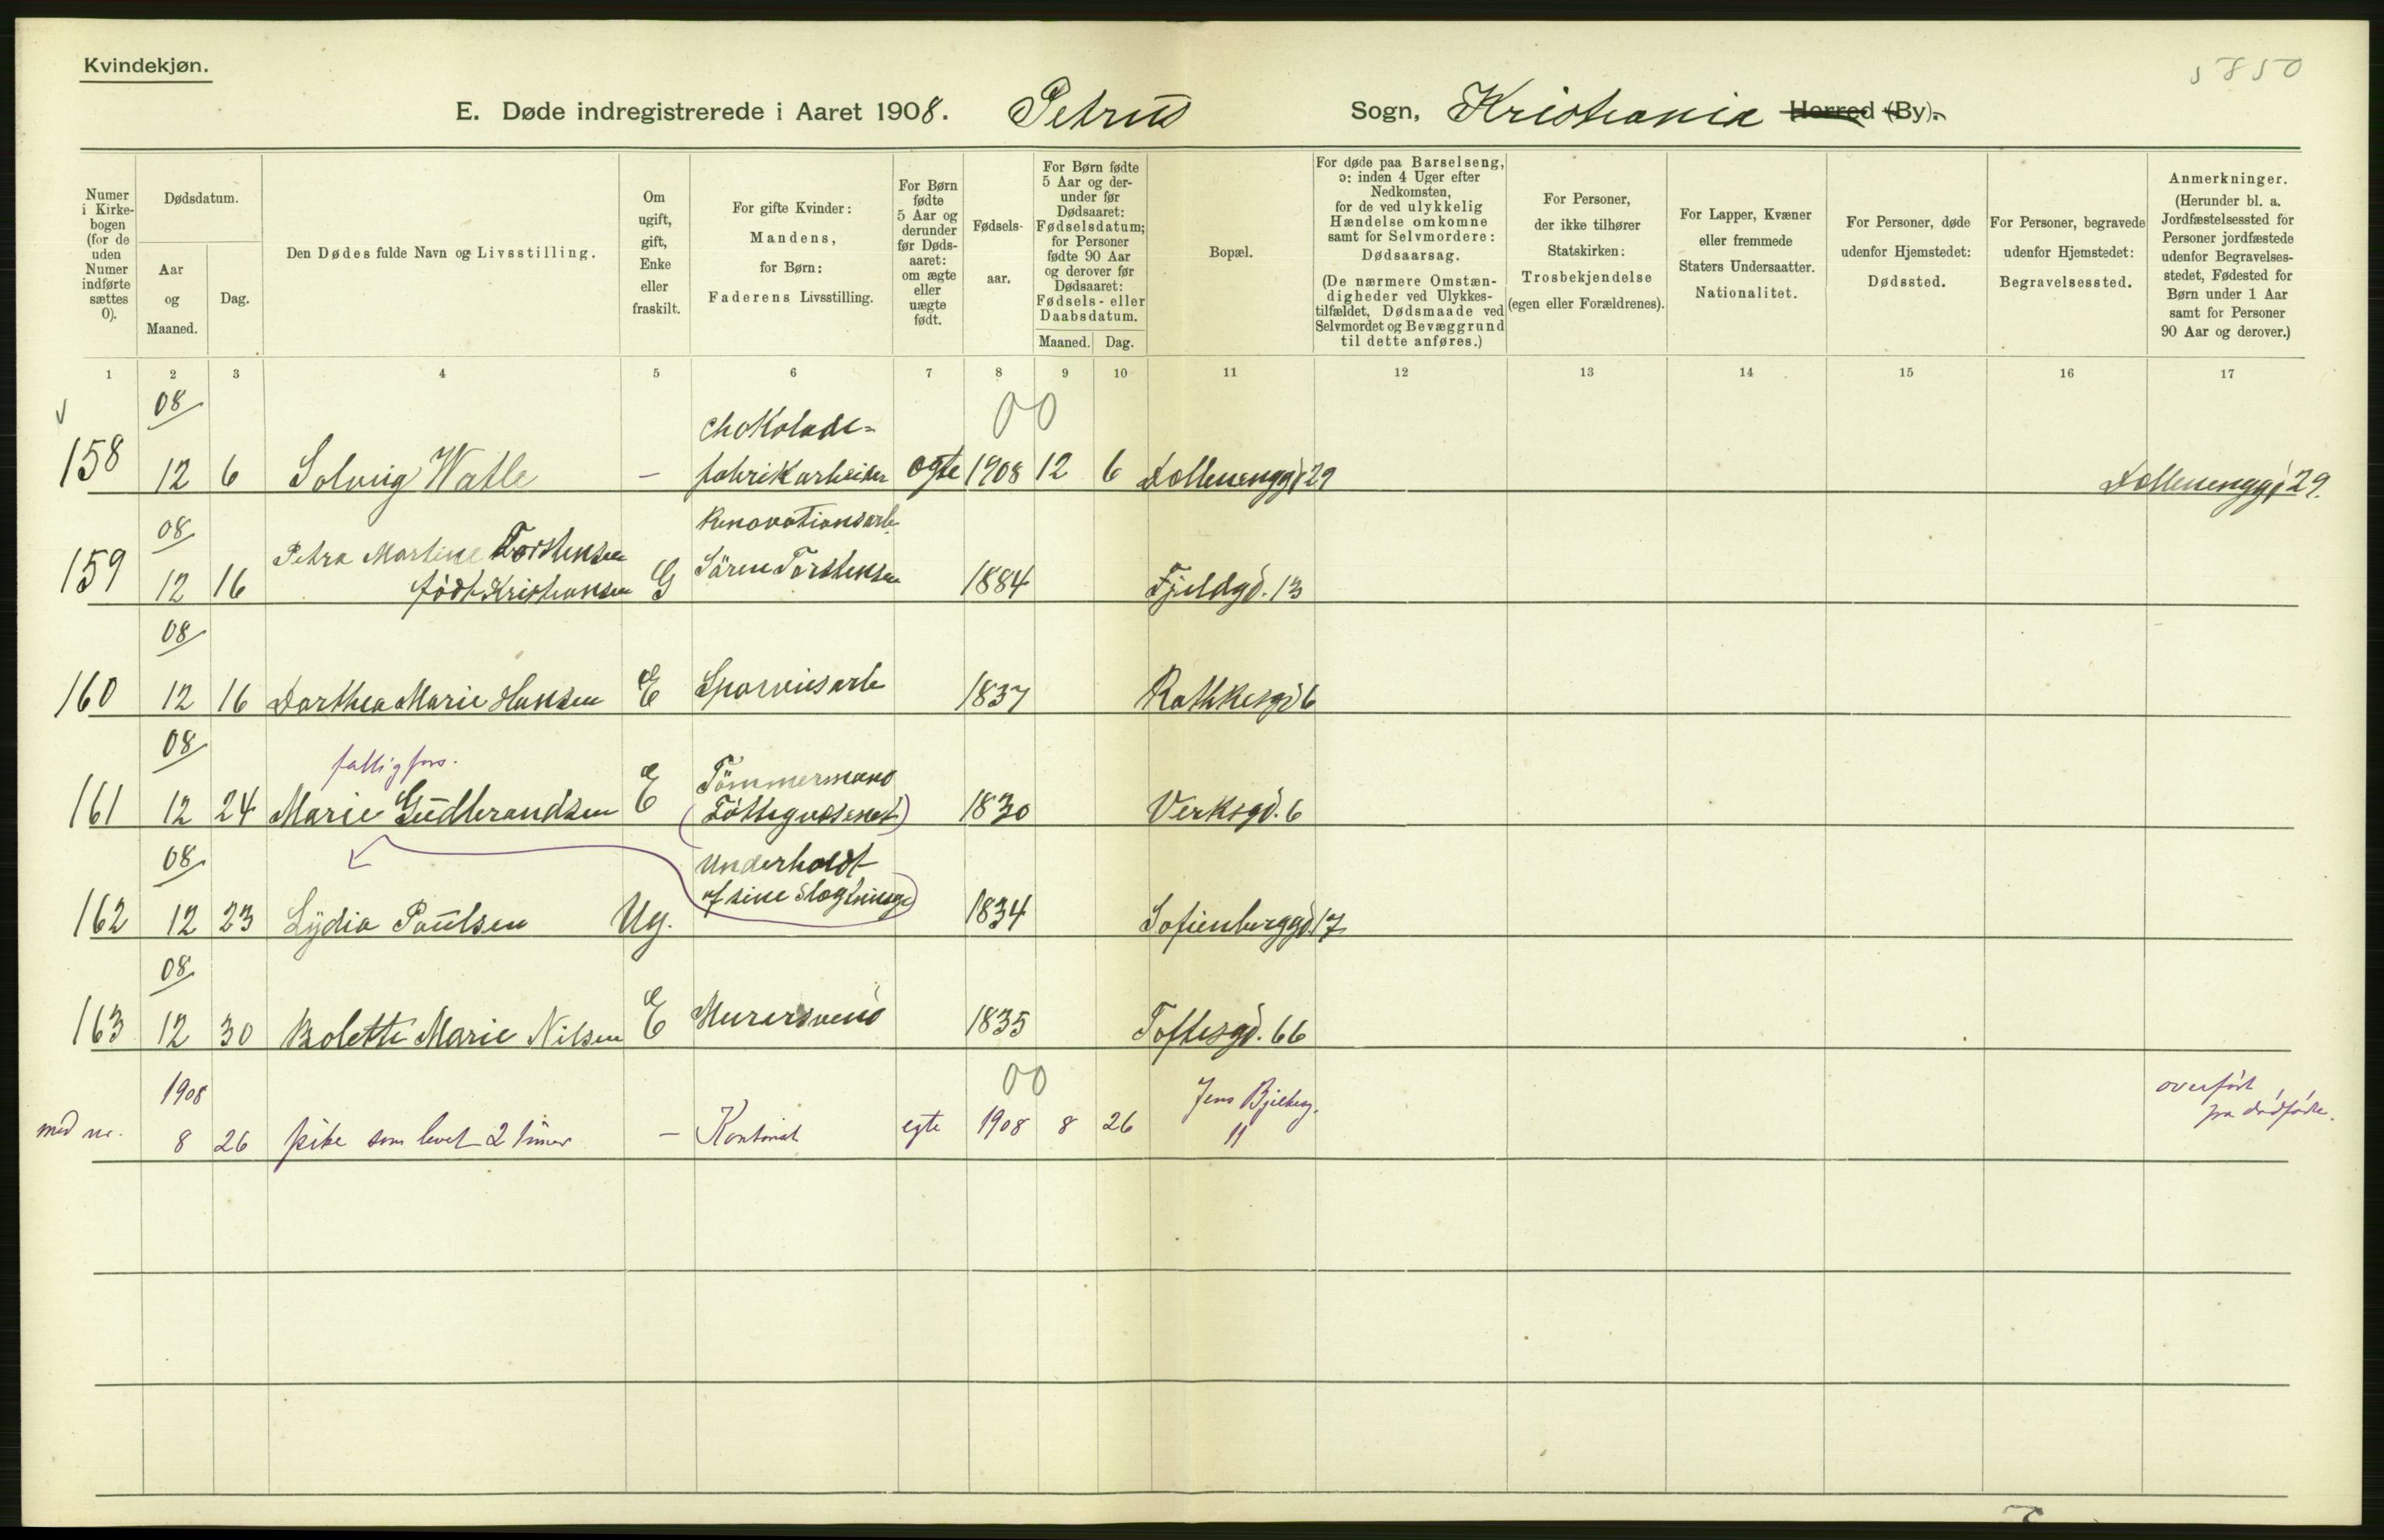 Kvindekjøn.
5850
E. Døde indregistrerede i Aaret 1908. Petrus Sogn, Kristiania Herred (By).
Numer
i Kirke-
bogen
(for de
uden
Numer
indførte
sættes
0).
Dødsdatum.
Aar
og
Maaned.
Dag.
Den Dødes fulde Navn og Livsstilling.
Om
ugift,
gift,
Enke
eller
fraskilt.
For gifte Kvinder:
Mandens,
for Børn:
Faderens Livsstilling.
For Børn
fødte
5 Aar og
derunder
før Døds-
aaret:
om ægte
eller
uægte
født.
Fødsels-
aar.
For Børn fødte
5 Aar og der-
under før
Dødsaaret:
Fødselsdatum;
for Personer
fødte 90 Aar
og derover før
Dødsaaret:
Fødsels- eller
Daabsdatum.
Maaned. Dag.
Bopæl.
For døde paa Barselseng,
ɔ: inden 4 Uger efter
Nedkomsten,
for de ved ulykkelig
Hændelse omkomne
samt for Selvmordere:
Dødsaarsag.
(De nærmere Omstæn-
digheder ved Ulykkes-
tilfældet, Dødsmaade ved
Selvmordet og Bevæggrund
til dette anføres.)
For Personer,
der ikke tilhører
Statskirken:
Trosbekjendelse
(egen eller Forældrenes).
For Lapper, Kvæner
eller fremmede
Staters Undersaatter.
Nationalitet.
For Personer, døde
udenfor Hjemstedet:
Dødssted.
For Personer, begravede
udenfor Hjemstedet:
Begravelsessted.
Anmerkninger.
(Herunder bl. a.
Jordfæstelsessted for
Personer jordfæstede
udenfor Begravelses-
stedet, Fødested for
Børn under 1 Aar
samt for Personer
90 Aar og derover.)
1 2 3 4 5 6 7 8 9 10 11 12 13 14 15 16 17
08 chokolade= 00
158 12 6 Solveig Watle — fabrikarbeider egte 1908 12 6 Dællenenggd 29 Dællenenggd 29.
08 Renovationsarb.
Petra Martine Torstensen
159 12 16 født Kristiansen G Sören Torstensen 1884 Fjeldgd. 13
08
160 12 16 Dorthea Marie Hansen E Sporveisarb 1837 Rathkesgd 6
08 fattigfors. Tömmermand
161 12 24 Marie Gudbrandsen E (Fattigvæsenet) 1830 Verksgd. 6
08 Underholdt
162 12 23 Lydia Paulsen Ug. af sine slægtninge) 1834 Sofienberggd. 17
08
163 12 30 Bolette Marie Nilsen E Murersvend 1835 Toftesgd. 66
1908 00 Jens Bjelkesg. overført
med nr. 8 26 pike som levet 2 timer — Kontorist egte 1908 8 26 11 fra dødfødte.